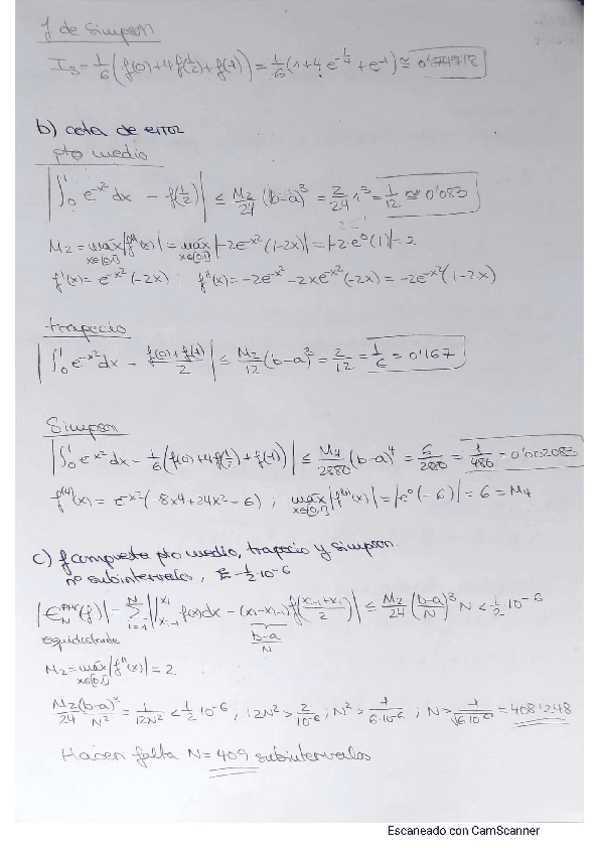 f de Simpson
I₃ = 1/6 (f(0)+4f(1/2)+f(1)) = 1/6 (1+4e^(-1/4)+e^(-1)) ≅ 0'74718
b) cota de error
pto medio
|∫₀¹ e^(-x²) dx - f(1/2)| ≤ M₂/24 (b-a)³ = 2/24 1³ = 1/12 ≅ 0'083
M₂ = máx x∈[0,1] |f''(x)| = máx x∈[0,1] |-2e^(-x²)(1-2x)| = |-2·e⁰(1)| = 2
f'(x) = e^(-x²)(-2x) ; f''(x) = -2e^(-x²) - 2xe^(-x²)(-2x) = -2e^(-x²)(1-2x)
trapecio
|∫₀¹ e^(-x²) dx - (f(0)+f(1))/2| ≤ M₂/12 (b-a)³ = 2/12 = 1/6 = 0'167
Simpson
|∫₀¹ e^(-x²) dx - 1/6 (f(0)+4f(1/2)+f(1))| ≤ M₄/2880 (b-a)⁴ = 6/280 = 1/480 = 0'002083
f⁽⁴⁾(x) = e^(-x²)(-8x⁴+24x²-6) ; máx x∈[0,1] |f⁽⁴⁾(x)| = |e⁰(-6)| = 6 = M₄
c) f compuesta pto medio, trapecio y simpson.
nº subintervalos, E = 1/2·10^(-6)
|E_N (f)| = Σ i=1 N |∫ x_(i-1) x_i f(x)dx - (x_i - x_(i-1)) f((x_(i-1)+x_i)/2)| ≤ M₂/24 ((b-a)/N)³ N < 1/2·10^(-6)
equidistante (b-a)/N
M₂ = máx x∈[0,1] |f''(x)| = 2.
M₂/24 (b-a)³/N² = 1/12N² < 1/2 10^(-6), 12N² > 2/10^(-6) ; N² > 1/6·10^(-6) ; N > 1/√6·10^(-6) = 408'248
Hacen falta N = 409 subintervalos
Escaneado con CamScanner